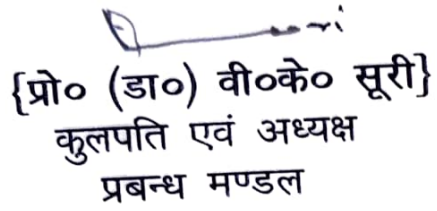 {प्रो० (डा०) वी०के० सूरी}
कुलपति एवं अध्यक्ष
प्रबन्ध मण्डल